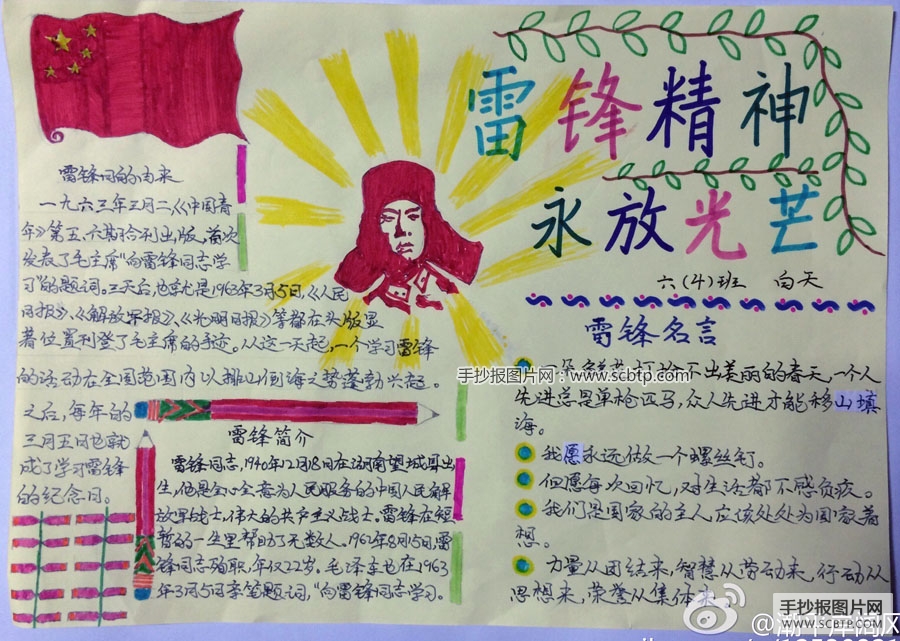 雷锋精神
永放光芒
六(4)班 白天
雷锋日的由来
一九六三年三月二《中国青
年》第五、六期合刊出版，首次
发表了毛主席"向雷锋同志学
习"的题词。三天后，也就是1963年3月5日，《人民
日报》、《解放军报》、《光明日报》等都在头版显
著位置刊登了毛主席的手迹。从这一天起，一个学习雷锋
的活动在全国范围内以排山倒海之势蓬勃兴起。
之后，每年的
三月五日也就
成了学习雷锋
的纪念日。
雷锋简介
雷锋同志，1940年12月18日在湖南望城县出
生，他是全心全意为人民服务的中国人民解
放军战士，伟大的共产主义战士。雷锋在短
暂的一生里帮助了无数人。1962年8月15日雷
锋同志殉职，年仅22岁。毛泽东也在1963
年3月5日亲笔题词，"向雷锋同志学习。
雷锋名言
不出美丽的春天，一个人
先进总是单枪匹马，众人先进才能移山填
海。
我愿永远做一个螺丝钉。
但愿每次回忆，对生活都不感负疚。
我们是国家的主人应该处处为国家着
想。
力量从团结来，智慧从劳动来，行动从
思想来，荣誉从集体来
手抄报图片网：www.scbtp.com
手抄报图片网
WWW.SCBTP.COM